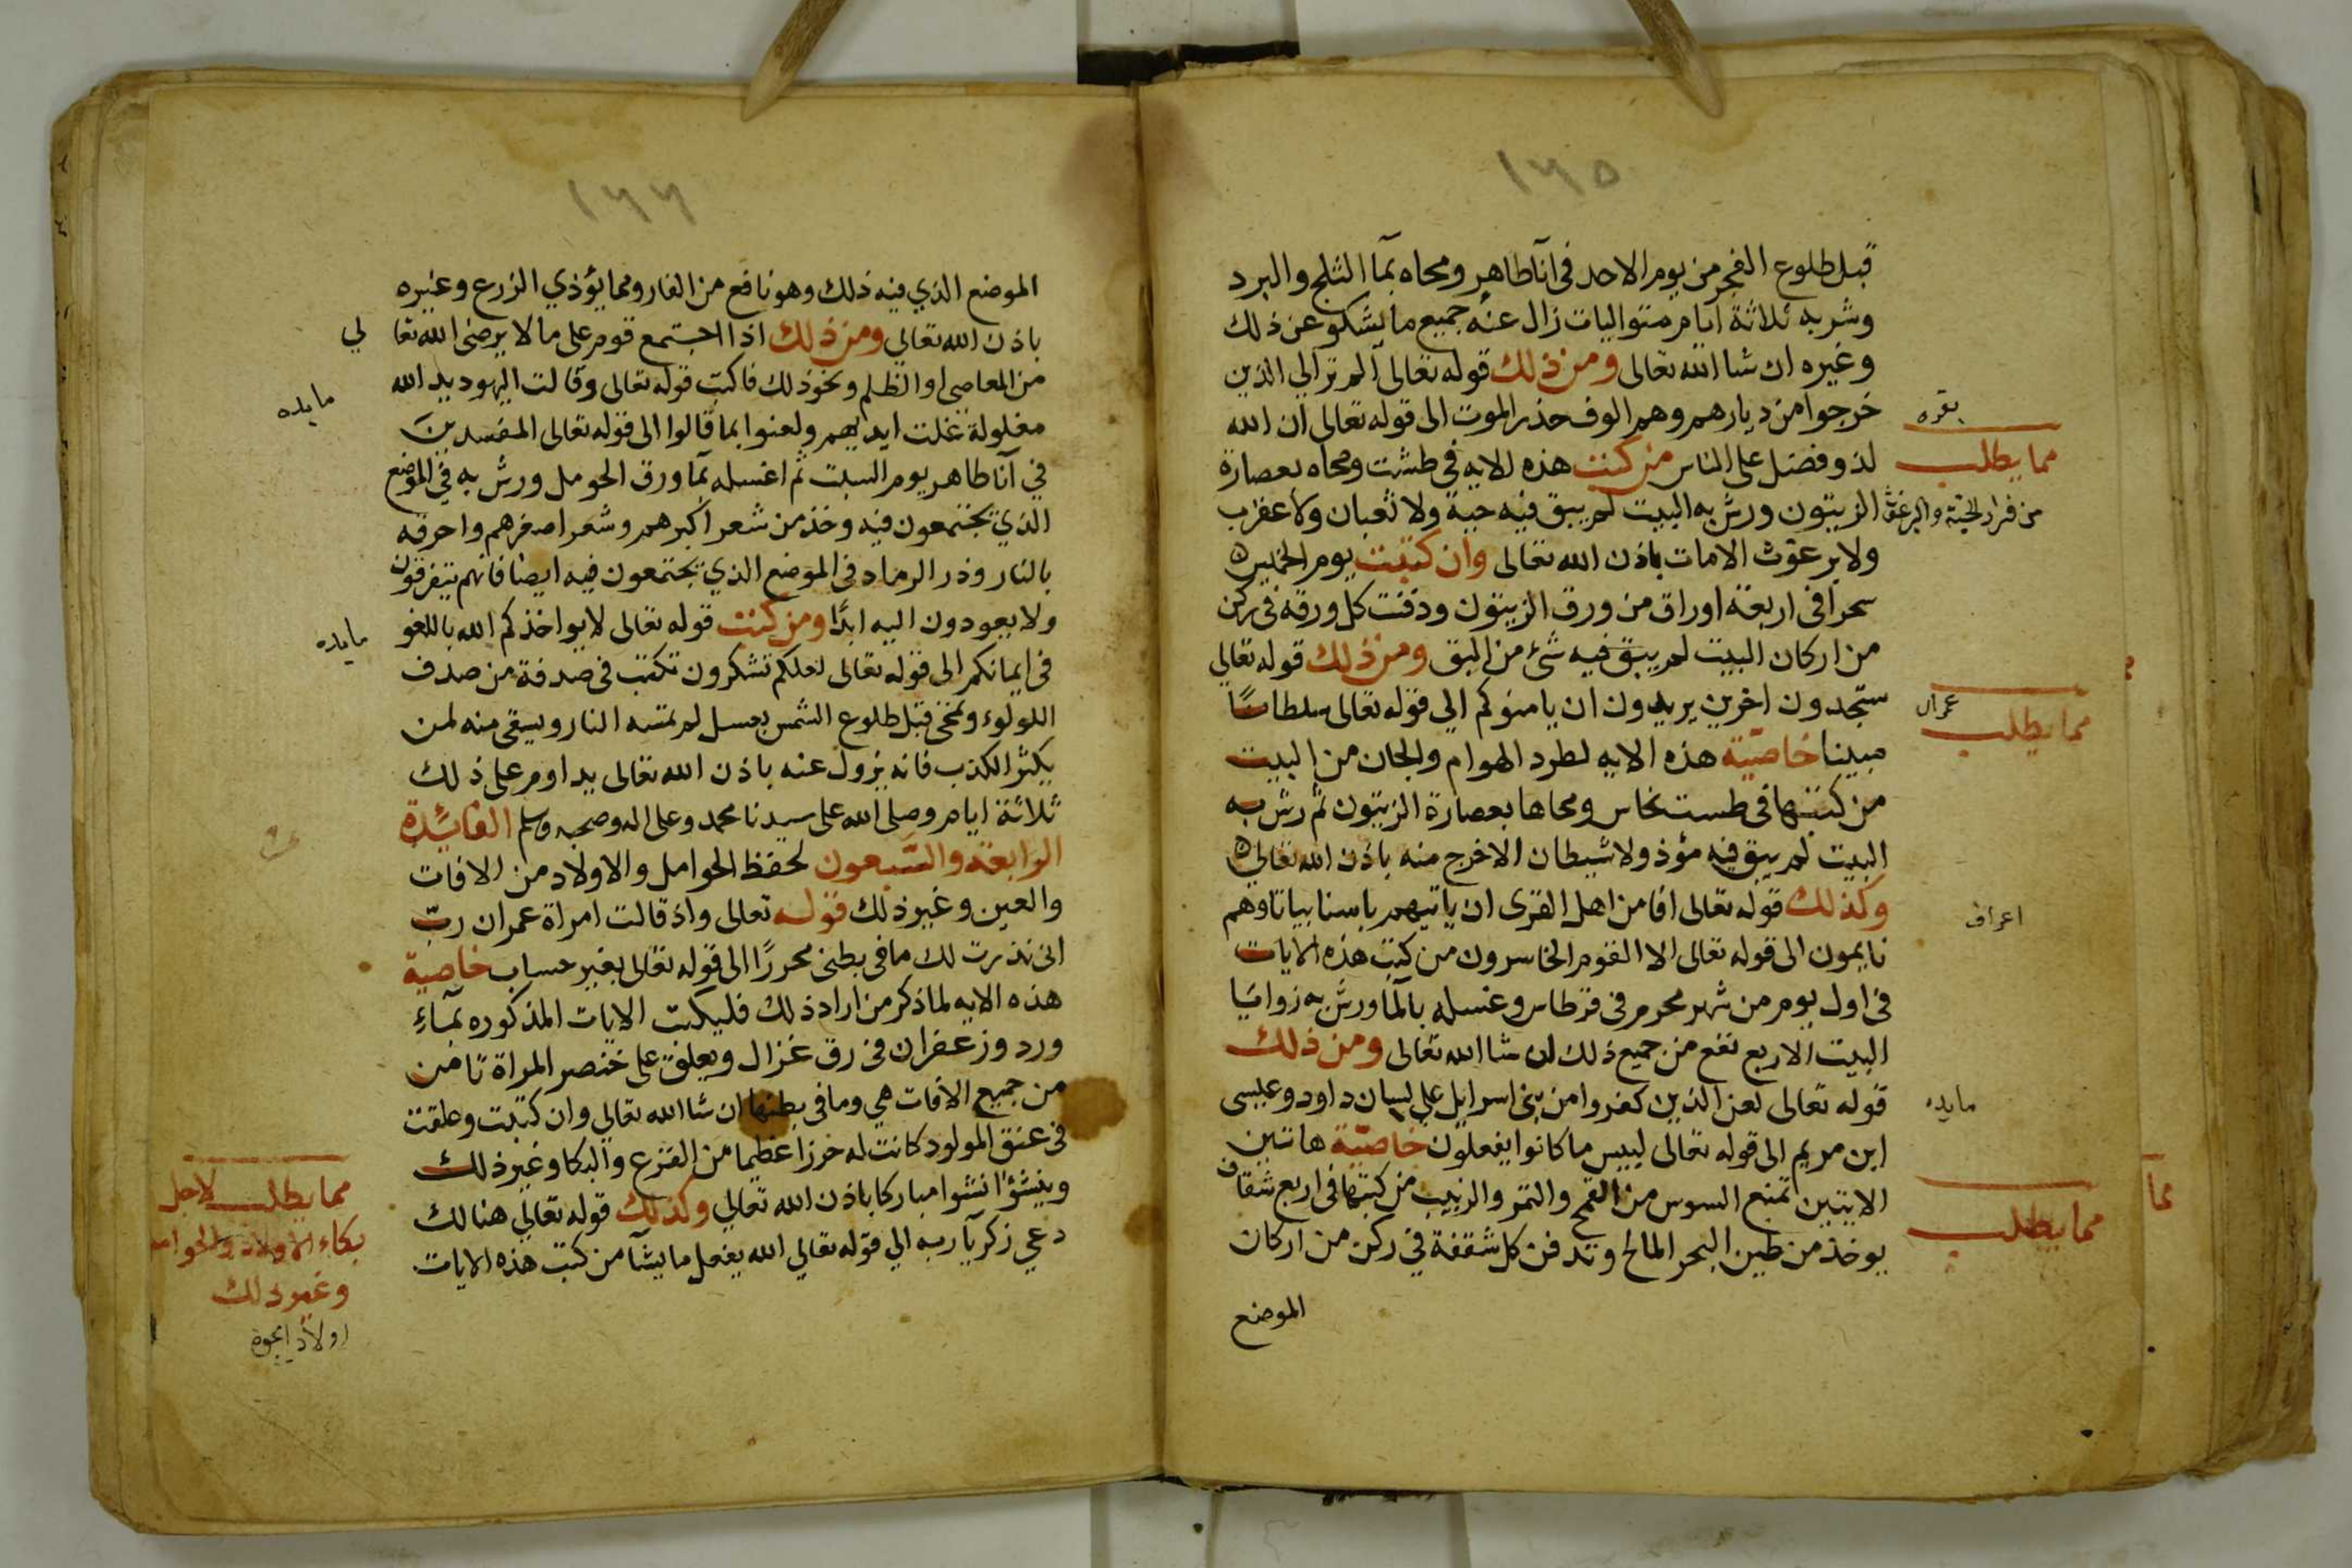 ١٦٥
قبل طلوع الفجر من يوم الاحد في آنا طاهر ومحاه بمآ الثلج والبرد
وشربه ثلاثة ايام متواليات زال عنه جميع ما يشكو عن ذلك
وغيره ان شا الله تعالى ومن ذلك قوله تعالى ألم تر الي الذين
خرجوا من ديارهم وهم الوف حذر الموت الى قوله تعالى ان الله
لذو فضل على الناس من كتب هذه الايه في طشت ومحاه بعصارة
الزيتون ورش به البيت لم يبق فيه حية ولا ثعبان ولا عقرب
ولا برغوث الامات باذن الله تعالى وان كتبت يوم الخميس ه
سحرا في اربعة اوراق من ورق الزيتون ودفنت كل ورقه في ركن
من اركان البيت لم يبق فيه شئ من البق ومن ذلك قوله تعالي
ستجدون اخرين يريدون ان يامنوكم الي قوله تعالى سلطانًا
مبينا خاصّية هذه الايه لطرد الهوام والجان من البيت
من كتبها في طست نحاس ومحاها بعصارة الزيتون ثم رش به
البيت لم يبق فيه مؤذ ولا شيطان الاخرج منه باذن الله تعالي ه
وكذلك قوله تعالى افامن اهل القرى ان ياتيهم باسنا بياتا وهم
نايمون الى قوله تعالى الا القوم الخاسرون من كتب هذه الايات
في اول يوم من شهر محرم في قرطاس وغسله بالمآ ورش به زوايا
البيت الاربع نفع من جميع ذلك ان شا الله تعالى ومن ذلك
قوله تعالى لعن الذين كفروا من بني اسرايل علي لسان داود وعيسى
ابن مريم الى قوله تعالى لبيس ما كانوا يفعلون خاصّية هاتين
الايتين تمنع السوس من القمح والتمر والزبيب من كتبها في اربع شقاف
يوخذ من طين البحر المالح وتدفن كل شقفة في ركن من اركان
الموضع
بقره
مما يطلب
من فرار الحية والبرغث
عمران
مما يطلب
اعراف
مايده
مما يطلب
مما
١٦٦
الموضع الذي فيه ذلك وهو نافع من الفار ومما يؤذي الزرع وغيره
باذن الله تعالي ومن ذلك اذا اجتمع قوم على ما لا يرضى الله تعا لي
من المعاصي او الظلم ونحو ذلك فاكتب قوله تعالى وقالت اليهود يد الله
مغلولة غلت ايديهم ولعنوا بما قالوا الى قوله تعالى المفسدين
في آنا طاهر يوم السبت ثم اغسله بمآ ورق الحومل ورش به في الموضع
الذي يجتمعون فيه وخذ من شعر اكبرهم وشعر اصغرهم واحرقه
بالنار وذر الرماد في الموضع الذي يجتمعون فيه ايضا فانهم يتفرقون
ولا يعودون اليه ابدًا ومن كتب قوله تعالى لا يواخذكم الله باللغو
في ايمانكم الى قوله تعالى لعلكم تشكرون تكتب في صدفة من صدف
اللولوء وتمحى قبل طلوع الشمس بعسل لم تمسه النار ويسقى منه لمن
يكثر الكذب فانه يزول عنه باذن الله تعالى يداوم على ذلك
ثلاثة ايام وصلى الله على سيدنا محمد وعلى اله وصحبه وسلم الفائدة
الرابعة والسّبعون لحفظ الحوامل والاولاد من الافات
والعين وغير ذلك قوله تعالى واذ قالت امراة عمران ربّ
اني نذرت لك ما في بطني محررًا الى قوله تعالى بغير حساب خاصية
هذه الايه لما ذكر من اراد ذلك فليكتب الايات المذكوره بمآء
ورد وزعفران في رق غزال ويعلق على خنصر المراة تامن
من جميع الافات هي وما في بطنها ان شا الله تعالي وان كتبت وعلقت
في عنق المولود كانت له حرزا عظيما من الفزع والبكا وغير ذلك
وينشؤ انشوا مباركا باذن الله تعالي وكذلك قوله تعالي هنالك
دعي زكريآ ربه الي قوله تعالي الله يفعل ما يشآ من كتب هذه الايات
مايده
مايده
مما يطلب لاجل
بكاء الاولاد والحوامل
وغير ذلك